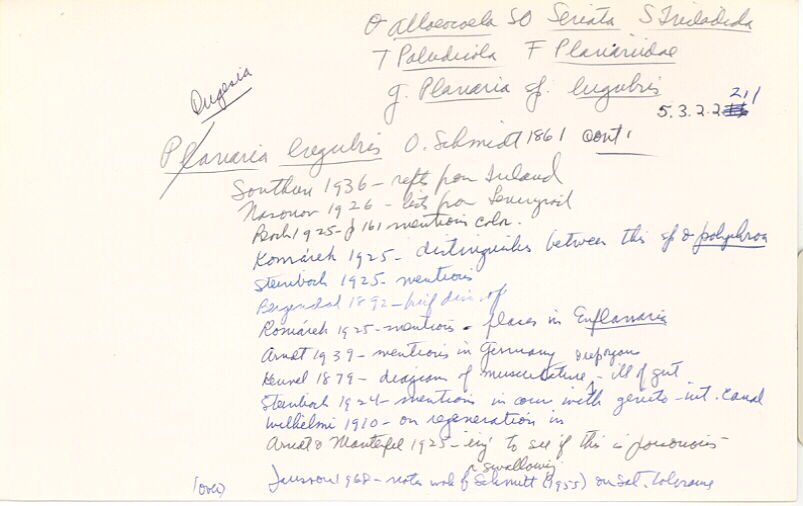 O Alloeocoela SO Seriata S Tricladida
T Paludicola F Planariidae
g. Planaria sp. lugubris
5.3.2.2 211
Dugesia
Planaria lugubris O. Schmidt 1861 cont.
Southern 1936 – repts from Ireland
Nasonov 1926 – lists from
1925 – p 161 mentions color.
Komárek 1925 – distinguishes between this sp & polychroa
Steinböck 1925 – mentions
Bergendal 1892 – brief disc. of
Komárek 1925 – mentions – places in Euplanaria
Arndt 1939 – mentions in Germany
Kennel 1879 – diagram of musculature, repr. organs – ill of gut
Steinböck 1924 – mentions in conn with genito-int. canal
Wilhelmi 1910 – on regeneration in
Arndt & Manteufel 1925 – inj to see if this is poisonous –
swallowing
(over) Jansson 1968 – notes work of Schmitt (1955) on Sal. tolerance